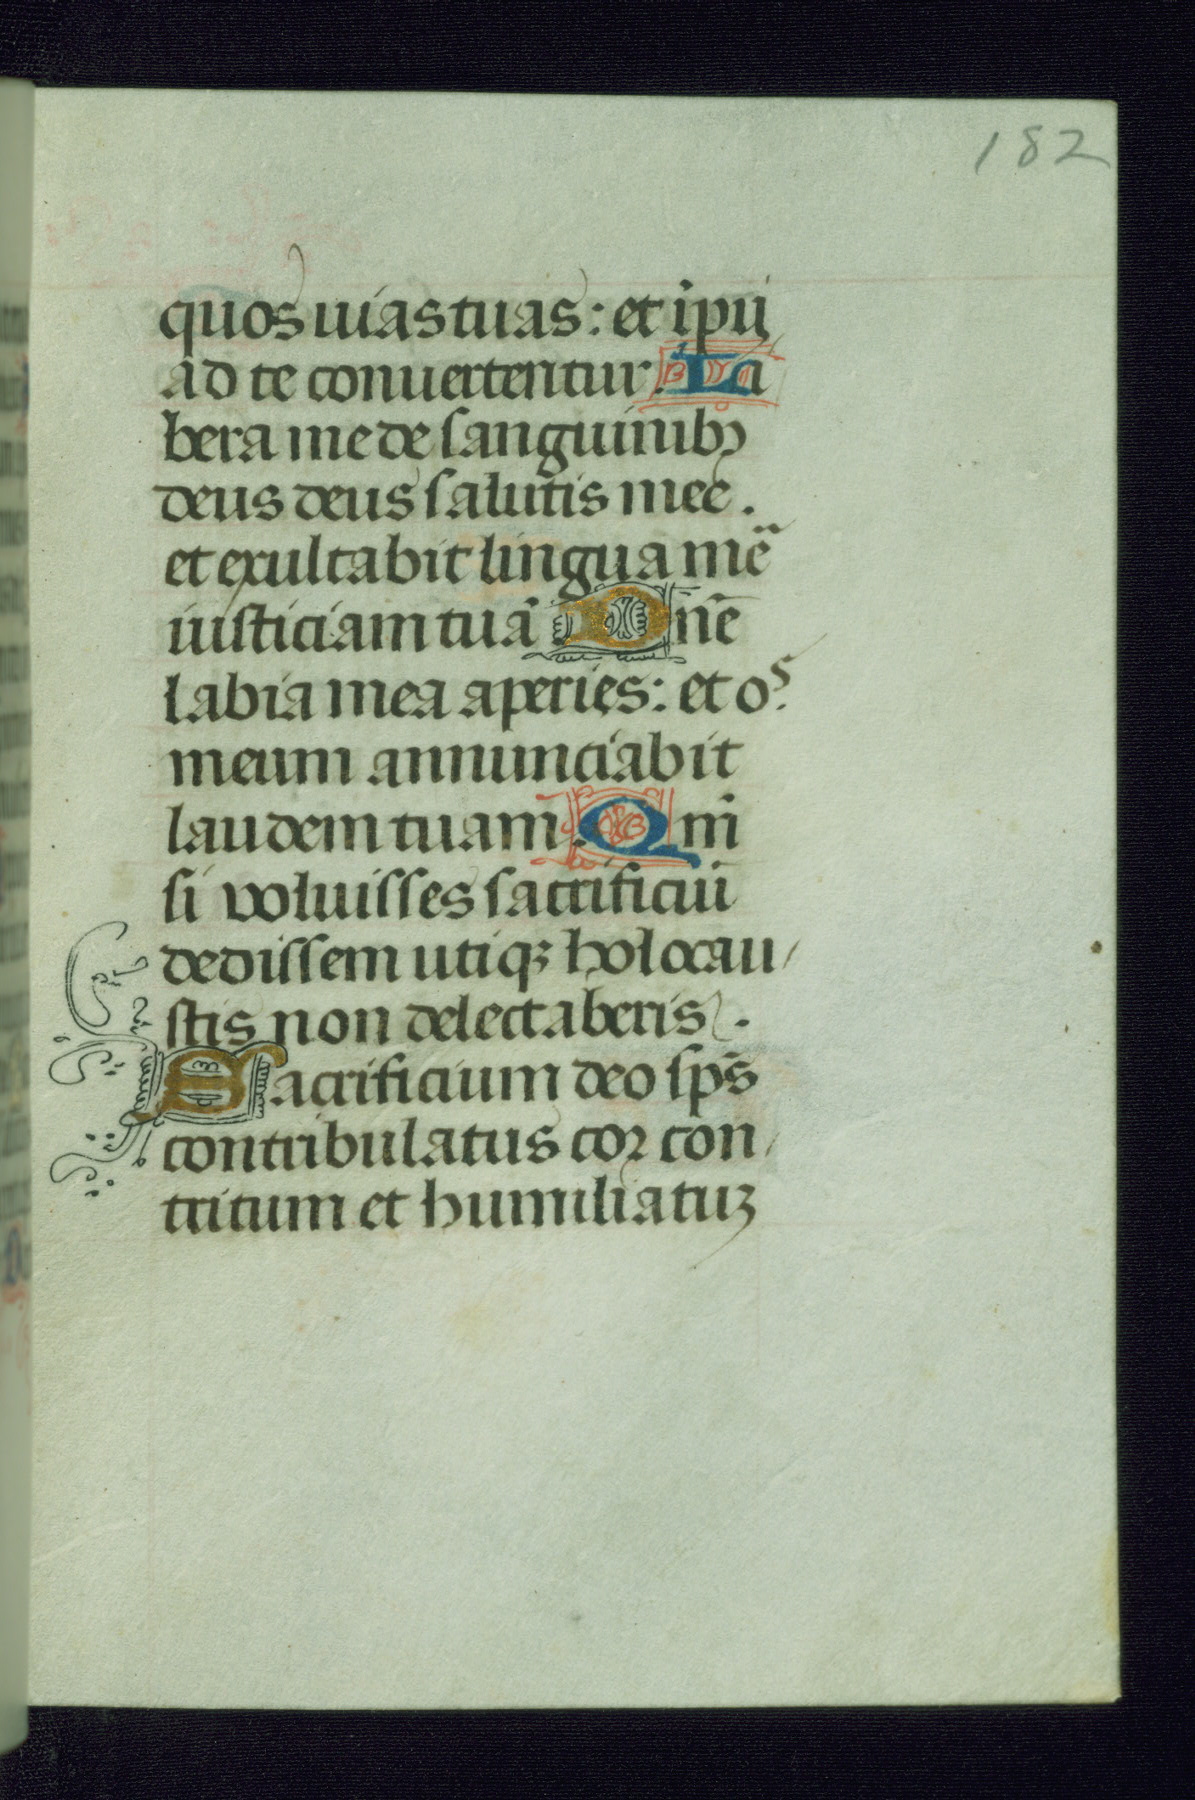 182
quos uias tuas: et ipij
ad te conuertentur. La
bera me de sanguinibꝫ
deus deus salutis meę.
et exultabit lingua mē
iusticiam tuā Dn̄e
labia mea aperies: et os
meum annunciabit
laudem tuam. Qm̄
si voluisses sacrificiū
dedissem utiqꝫ holocau
stis non delectaberis.
Sacrificium deo sps̄
contribulatus coꝛ con
tritum et humiliatuꝫ